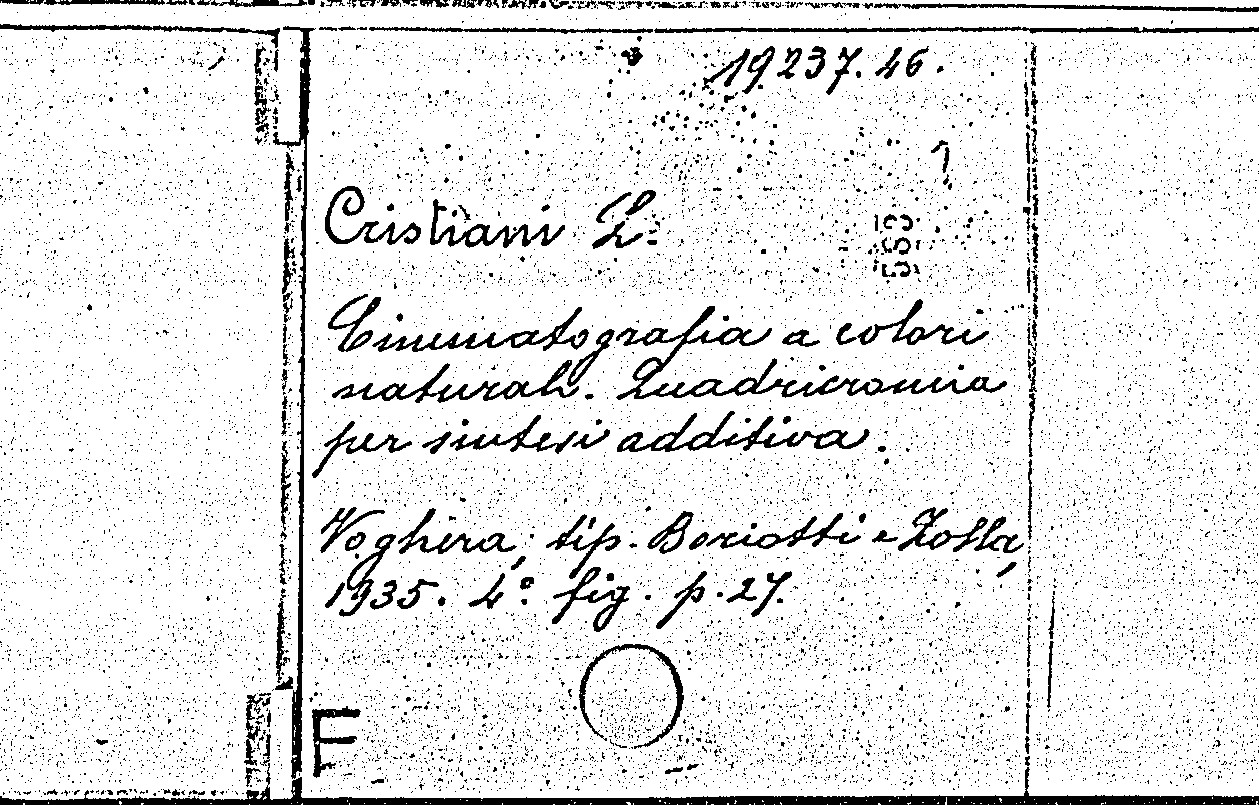 19237.46.
1
Cristiani L.
Cinematografia a colori
naturali. Quadricromia
per sintesi additiva.
Voghera, tip. Boriotti e Zolla,
1935. 4° fig. p. 27.
F